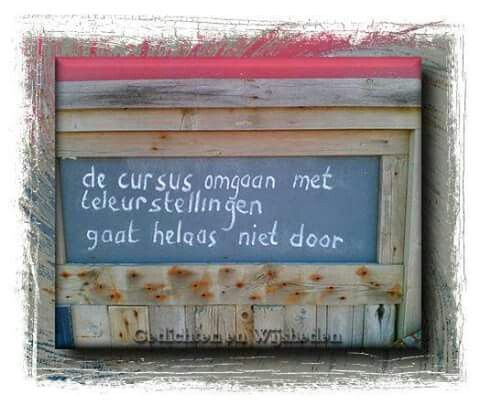 de cursus omgaan met
teleurstellingen
gaat helaas niet door
Gedichten en Wijsheden